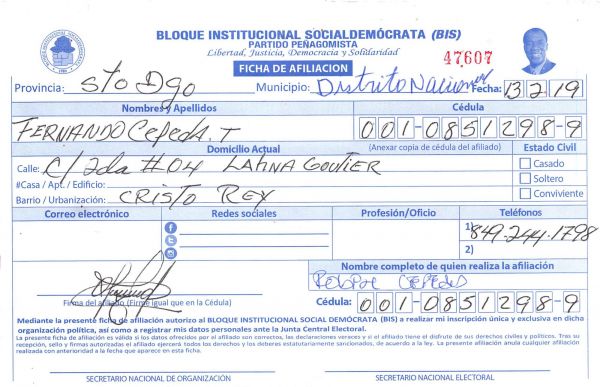 BLOQUE INSTITUCIONAL SOCIALDEMÓCRATA (BIS)
PARTIDO PEÑAGOMISTA
Libertad, Justicia, Democracia y Solidaridad
47607
FICHA DE AFILIACION
Provincia: Sto Dgo Municipio: Distrito Nacional Fecha: 13 2 19
Nombres y Apellidos Cédula
FERNANDO Cepeda. T 001-0851298-9
Domicilio Actual (Anexar copia de cédula del afiliado) Estado Civil
Calle: C/ 2da #04 LAtiNA Goutier Casado
#Casa / Apt. / Edificio: Soltero
Barrio / Urbanización: CRISTO REY Conviviente
Correo electrónico Redes sociales Profesión/Oficio Teléfonos
1) 849-244-1798
2)
Nombre completo de quien realiza la afiliación
CEPEDES
Firma del afiliado (Firme igual que en la Cédula) Cédula: 001-0851298-9
Mediante la presente ficha de afiliación autorizo al BLOQUE INSTITUCIONAL SOCIAL DEMÓCRATA (BIS) a realizar mi inscripción única y exclusiva en dicha
organización política, así como a registrar mis datos personales ante la Junta Central Electoral.
La presente ficha de afiliación es válida si los datos ofrecidos por el afiliado son correctos, las declaraciones veraces y si el afiliado tiene el disfrute de sus derechos civiles y políticos. Tras su
recepción, sello y firmas autorizadas el afiliado ejercerá todos los derechos y los deberes estatutariamente sancionados, de acuerdo a la ley. La presente afiliación anula cualquier afiliación
realizada con anterioridad a la fecha que aparece en esta ficha.
SECRETARIO NACIONAL DE ORGANIZACIÓN SECRETARIO NACIONAL ELECTORAL